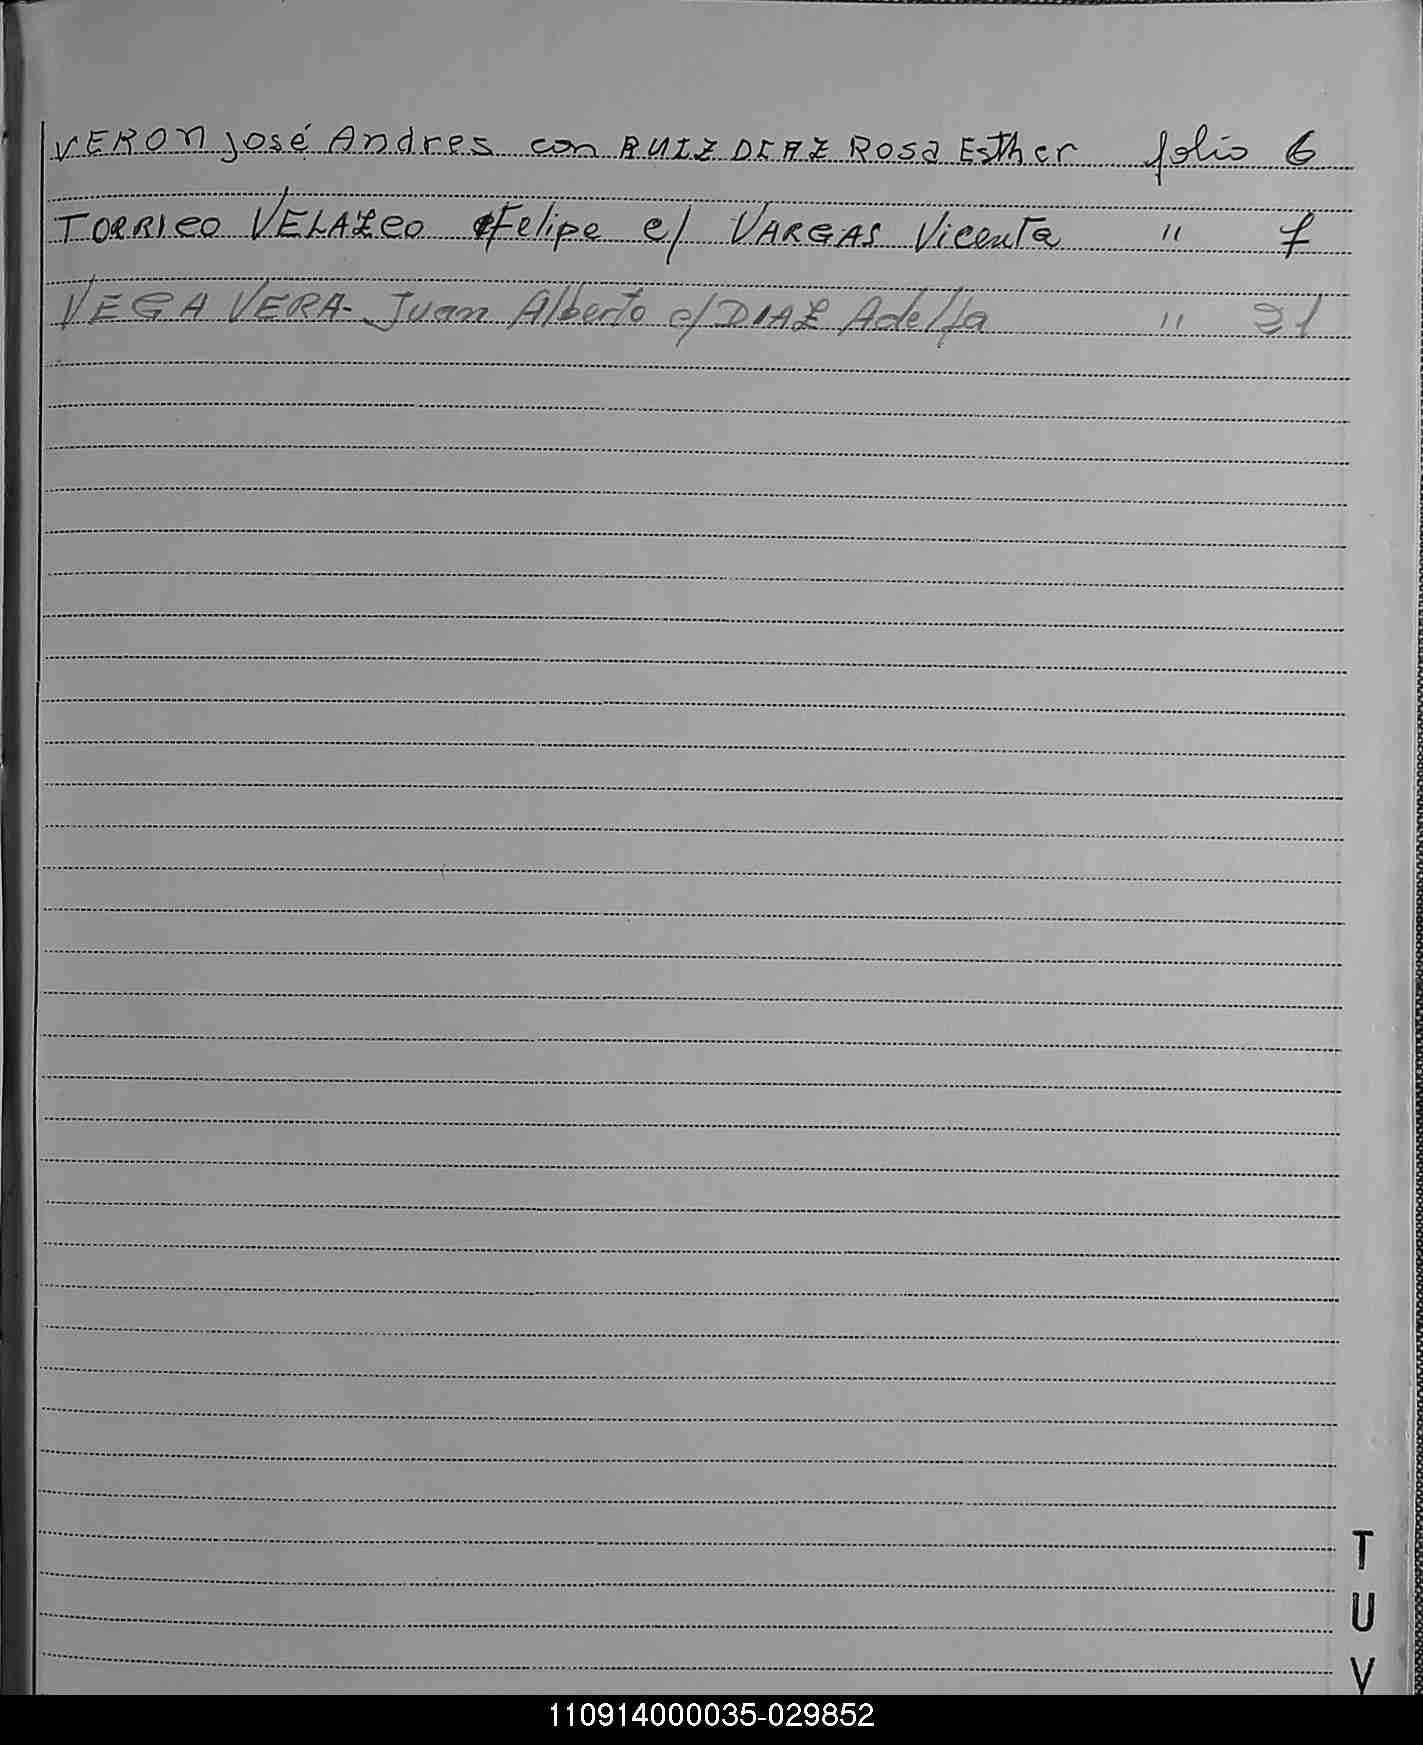 VERON José Andres con RUIZ DIAZ Rosa Esther folio 6
TORRICO VELAZCO Felipe c/ VARGAS Vicenta " 7
VEGA VERA- Juan Alberto c/ DIAZ Adelfa " 21
T
U
V
110914000035-029852